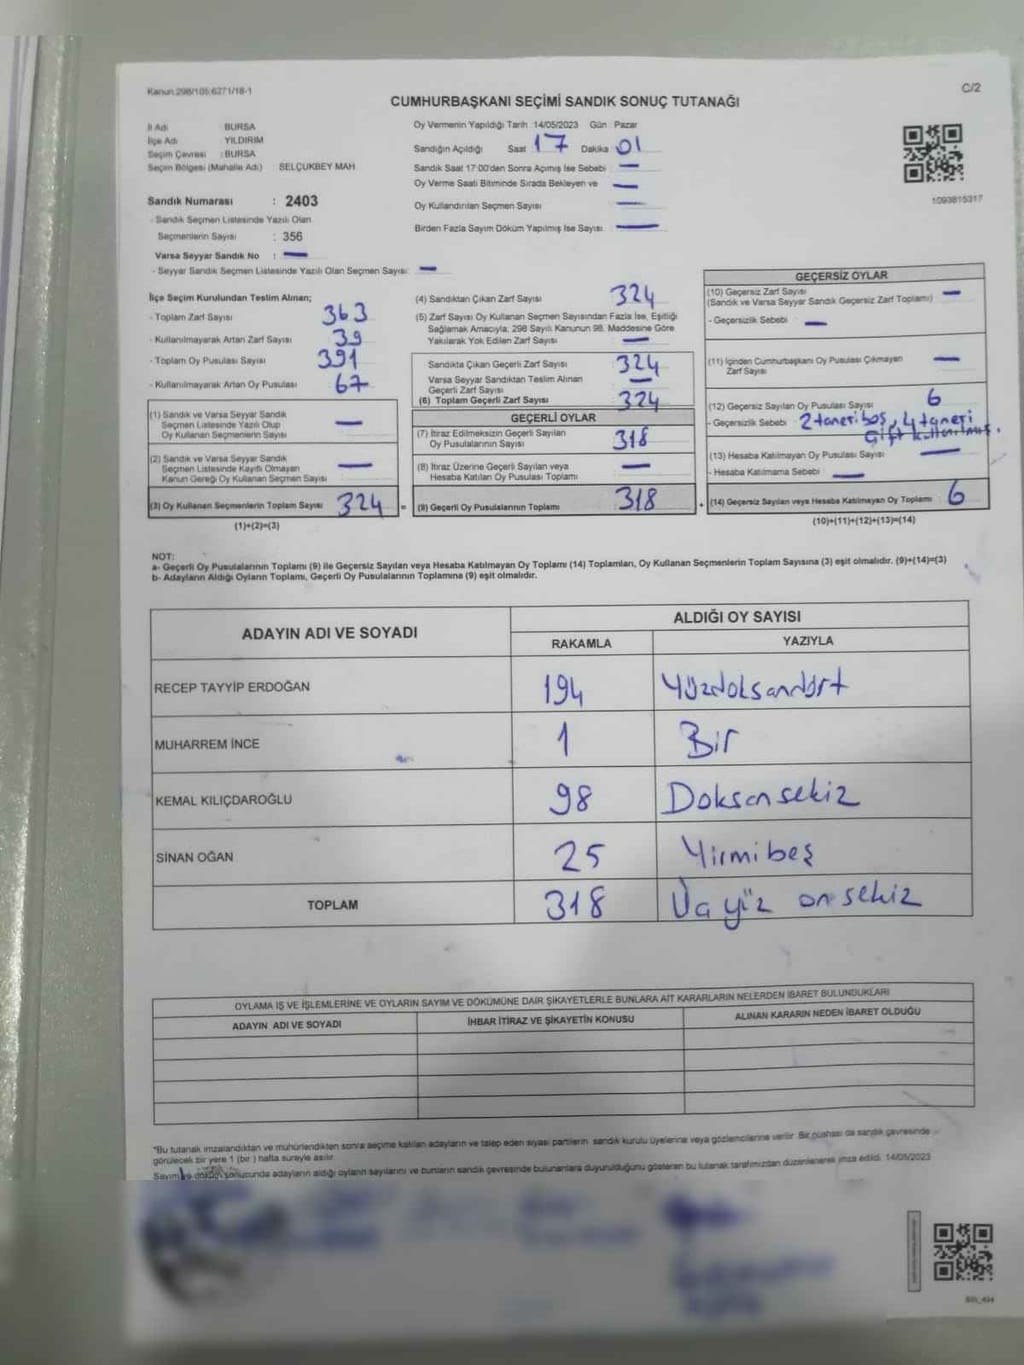 Kanun:298/105;6271/18-1
C/2
CUMHURBAŞKANI SEÇİMİ SANDIK SONUÇ TUTANAĞI
İl Adı BURSA
İlçe Adı YILDIRIM
Seçim Çevresi : BURSA
Seçim Bölgesi (Mahalle Adı) : SELÇUKBEY MAH
Sandık Numarası : 2403
- Sandık Seçmen Listesinde Yazılı Olan
Seçmenlerin Sayısı : 356
Varsa Seyyar Sandık No : —
- Seyyar Sandık Seçmen Listesinde Yazılı Olan Seçmen Sayısı: —
Oy Vermenin Yapıldığı Tarih 14/05/2023 Gün Pazar
Sandığın Açıldığı Saat 17 Dakika 01
Sandık Saat 17:00'den Sonra Açımış İse Sebebi —
Oy Verme Saati Bitiminde Sırada Bekleyen ve —
Oy Kullandırılan Seçmen Sayısı —
Birden Fazla Sayım Döküm Yapılmış İse Sayısı —
1093815317
İlçe Seçim Kurulundan Teslim Alınan;
- Toplam Zarf Sayısı 363
- Kullanılmayarak Artan Zarf Sayısı 39
- Toplam Oy Pusulası Sayısı 391
- Kullanılmayarak Artan Oy Pusulası 67
(1) Sandık ve Varsa Seyyar Sandık
Seçmen Listesinde Yazılı Olup
Oy Kullanan Seçmenlerin Sayısı —
(2) Sandık ve Varsa Seyyar Sandık
Seçmen Listesinde Kayıtlı Olmayan
Kanun Gereği Oy Kullanan Seçmen Sayısı —
(3) Oy Kullanan Seçmenlerin Toplam Sayısı 324 =
(1)+(2)=(3)
(4) Sandıktan Çıkan Zarf Sayısı 324
(5) Zarf Sayısı Oy Kullanan Seçmen Sayısından Fazla İse, Eşitliği
Sağlamak Amacıyla, 298 Sayılı Kanunun 98. Maddesine Göre
Yakılarak Yok Edilen Zarf Sayısı —
Sandıkta Çıkan Geçerli Zarf Sayısı 324
Varsa Seyyar Sandıktan Teslim Alınan
Geçerli Zarf Sayısı —
(6) Toplam Geçerli Zarf Sayısı 324
GEÇERLİ OYLAR
(7) İtiraz Edilmeksizin Geçerli Sayılan
Oy Pusulalarının Sayısı 318
(8) İtiraz Üzerine Geçerli Sayılan veya
Hesaba Katılan Oy Pusulası Toplamı —
(9) Geçerli Oy Pusulalarının Toplamı 318 +
GEÇERSİZ OYLAR
(10) Geçersiz Zarf Sayısı —
(Sandık ve Varsa Seyyar Sandık Geçersiz Zarf Toplamı)
- Geçersizlik Sebebi —
(11) İçinden Cumhurbaşkanı Oy Pusulası Çıkmayan
Zarf Sayısı —
(12) Geçersiz Sayılan Oy Pusulası Sayısı 6
- Geçersizlik Sebebi 2 taneri boş, 4 taneri
Çift kullanılmış.
(13) Hesaba Katılmayan Oy Pusulası Sayısı —
- Hesaba Katılmama Sebebi —
(14) Geçersiz Sayılan veya Hesaba Katılmayan Oy Toplamı 6
(10)+(11)+(12)+(13)=(14)
NOT:
a- Geçerli Oy Pusulalarının Toplamı (9) ile Geçersiz Sayılan veya Hesaba Katılmayan Oy Toplamı (14) Toplamları, Oy Kullanan Seçmenlerin Toplam Sayısına (3) eşit olmalıdır. (9)+(14)=(3)
b- Adayların Aldığı Oyların Toplamı, Geçerli Oy Pusulalarının Toplamına (9) eşit olmalıdır.
ADAYIN ADI VE SOYADI ALDIĞI OY SAYISI
RAKAMLA YAZIYLA
RECEP TAYYİP ERDOĞAN 194 Yüzdoksandört
MUHARREM İNCE 1 Bir
KEMAL KILIÇDAROĞLU 98 Doksansekiz
SİNAN OĞAN 25 Yirmibeş
TOPLAM 318 Üçyüz onsekiz
OYLAMA İŞ VE İŞLEMLERİNE VE OYLARIN SAYIM VE DÖKÜMÜNE DAİR ŞİKAYETLERLE BUNLARA AİT KARARLARIN NELERDEN İBARET BULUNDUKLARI
ADAYIN ADI VE SOYADI İHBAR İTİRAZ VE ŞİKAYETİN KONUSU ALINAN KARARIN NEDEN İBARET OLDUĞU
*Bu tutanak imzalandıktan ve mühürlendikten sonra seçime katılan adayların ve talep eden siyasi partilerin sandık kurulu üyelerine veya gözlemcilerine verilir. Bir nüshası da sandık çevresinde
görülecek bir yere 1 (bir) hafta süreyle asılır.
Sayım ve döküm sonucunda adayların aldığı oyların sayılarını ve bunların sandık çevresinde bulunanlara duyurulduğunu gösteren bu tutanak tarafımızdan düzenlenerek imza edildi. 14/05/2023